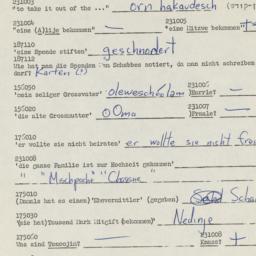 231003 231005
"to take it out of the ..." orn hakaudesch
231004
"eine (A)lije bekommen" — "eine Mitzwe bekommen" +
187110
"eine Spende stiften" geschnodert
187112
Wie hat man die Spenden am Schabbes notiert, da man nicht schreiben
darf? Karten (?)
156050 231006
"mein seliger Grossvater" Hurrie? —
156020 231007
"die alte Grossmutter" oOma Female? —
175010
"er wollte sie nicht heiraten" er wollte sie nicht
231008
"die ganze Familie ist zur Hochzeit gekommen"
" " "Mischpoche" "Chassne"
175010
(Damals hat es einen) "Ehevermittler" (gegeben)
175030
"mit (Tausend Mark Mitgift bekommen)" Nedinje
175050 231008
Was sind — Knass? +